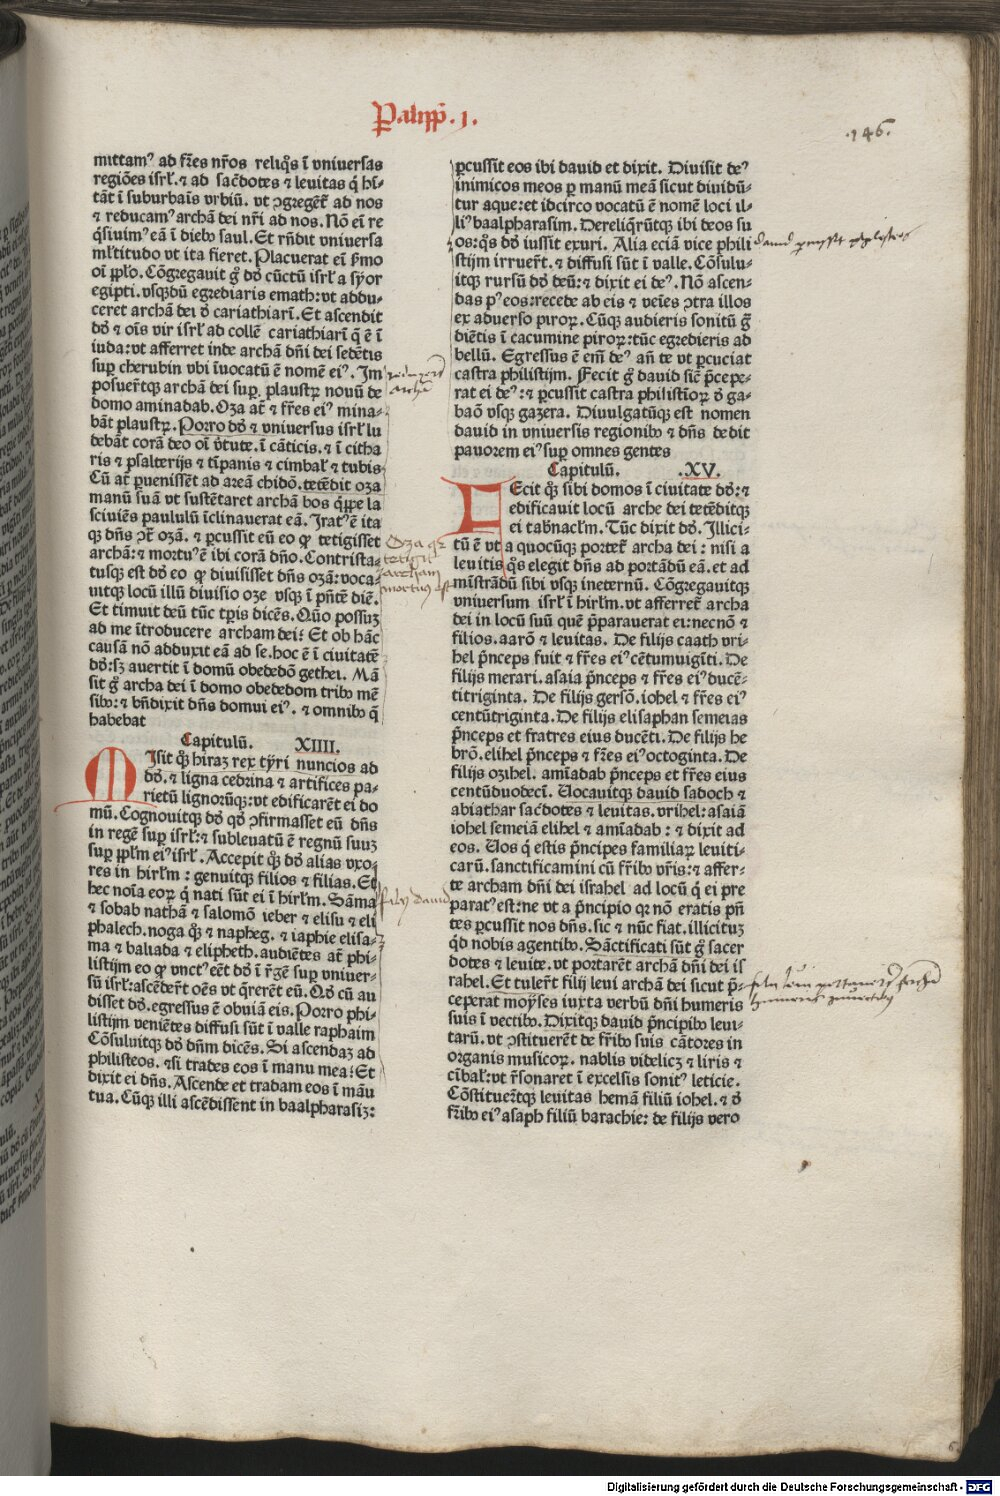 Paralipp̄. 1.
.146.
mittamꝰ ad fr̄es nr̄os reliq̊s ī vniuersas
regiōes isrł. ⁊ ad sac̄dotes ⁊ leuitas q̇ hī-
tāt ī suburbaīs vrbiū. vt ꝯgregēt̄ ad nos
⁊ reducamꝰ archā dei nr̄i ad nos. Nō eī re
q̄siuimꝰ eā ī diebꝫ saul. Et rn̄dit vniuersa
ml̄titudo vt ita fieret. Placuerat eī ẜmo
oī pp̄lo. Cōgregauit g̊ dd̄ cūctū isrł a syor
egipti. vsq̨dū egrediaris emath: vt addu-
ceret archā dei d̄ cariathiarī. Et ascendit
dd̄ ⁊ oīs vir isrł ad collē cariathiarī q̄ ē ī
iuda: vt afferret inde archā dn̄i dei sedētis
suꝑ cherubin vbi īuocatū ē nomē eiꝰ. Im
posuer̄tq̨ archā dei suꝑ. plaustꝝ nouū de
domo aminadab. Oza at̄ ⁊ fr̄es eiꝰ mina-
bāt plaustꝝ. Porro dd̄ ⁊ vniuersus isrł lu
debāt corā deo oī v̄tute. ī cāticis. ⁊ ī citha
ris ⁊ psalterijs ⁊ tīpanis ⁊ cimbał ⁊ tubis
Cū at̄ ꝑuenissēt ad areā chidō. tetēdit oza
manū suā vt sustētaret archā bos q̄ꝑpe la
sciuiēs paululū īclinauerat eā. Iratꝰ ē ita
q̨ dn̄s ꝯt̄ ozā. ⁊ ꝑcussit eū eo ꝙ tetigisset
archā: ⁊ mortuꝰ ē ibi corā dn̄o. Contrista-
tusq̨ est dd̄ eo ꝙ diuisisset dn̄s ozā: voca-
uitq̨ locū illū diuisio oze vsq̨ ī pn̄tē diē.
Et timuit deū tūc tꝑis dicēs. Qūo possuꝫ
ad me ītroducere archam dei? Et ob hāc
causā nō adduxit eā ad se. hoc ē ī ciuitatē
dd̄: sꝫ auertit ī domū obededō gethei. Mā
sit g̊ archa dei ī domo obededom tribꝫ mē
sibꝫ: ⁊ bn̄dixit dn̄s domui eiꝰ. ⁊ omnibꝫ q̄
habebat
Capitulū. XIIII.
MIsit q̊q̨ hiraꝫ rex tyri nuncios ad
dd̄. ⁊ ligna cedrina ⁊ artifices pa-
rietū lignorūq̨: vt edificarēt ei do
mū. Cognouitq̨ dd̄ qd̄ ꝯfirmasset eū dn̄s
in regē suꝑ isrł: ⁊ subleuatū ē regnū suuꝫ
suꝑ pp̄lm eiꝰ isrł. Accepit q̊q̨ dd̄ alias vxo-
res in hirłm: genuitq̨ filios ⁊ filias. Et
hec noīa eoꝝ q̇ nati sūt ei ī hirłm. Sāma
⁊ sobab nathā ⁊ salomō ieber ⁊ elisu ⁊ eli
phalech. noga q̊q̨ ⁊ napheg. ⁊ iaphie elisa-
ma ⁊ baliada ⁊ elipheth. audiētes at̄ phi-
listijm eo ꝙ vnctꝰ eēt dd̄ ī r̄gē suꝑ vniuer-
sū isrł: ascēder̄t oēs vt q̄rerēt eū. Qd̄ cū au
disset dd̄. egressus ē obuiā eis. Porro phi-
listijm veniētes diffusi sūt ī valle raphaim
Cōsuluitq̨ dd̄ dn̄m dicēs. Si ascendaꝫ ad
philisteos. ⁊si trades eos ī manu mea? Et
dixit ei dn̄s. Ascende et tradam eos ī māu
tua. Cūq̨ illi ascēdissent in baalpharasiꝫ:
archā
Oza qꝛ
tetigit
archam
mortuꝰ est
filij dauid
ꝑcussit eos ibi dauid et dixit. Diuisit deꝰ
inimicos meos ꝑ manū meā sicut diuidū-
tur aque: et idcirco vocatū ē nomē loci il-
liꝰ baalpharasim. Dereliq̄rūtq̨ ibi deos su
os: q̊s dd̄ iussit exuri. Alia eciā vice phili
stijm irruer̄t. ⁊ diffusi sūt ī valle. Cōsulu-
itq̨ rursū dd̄ deū: ⁊ dixit ei deꝰ. Nō ascen-
das pꝰ eos: recede ab eis ⁊ veīes ꝯtra illos
ex aduerso piroꝝ. Cūq̨ audieris sonitū g̊
diētis ī cacumine piroꝝ: tūc egredieris ad
bellū. Egressus ē em̄ deꝰ an̄ te vt ꝑcuciat
castra philistijm. Fecit g̊ dauid sic̄ p̄cepe-
rat ei deꝰ: ⁊ ꝑcussit castra philistīoꝝ d̄ ga-
baō vsq̨ gazera. Diuulgatūq̨ est nomen
dauid in vniuersis regionibꝫ ⁊ dn̄s dedit
pauorem eiꝰ suꝑ omnes gentes
Capitulū. .XV.
FEcit q̊q̨ sibi domos ī ciuitate dd̄: ⁊
edificauit locū arche dei tetēditq̨
ei tabn̄acłm. Tūc dixit dd̄. Illici-
tū ē vt a quocūq̨ portet̄ archa dei: nisi a
leuitis q̊s elegit dn̄s ad portādū eā. et ad
mīstrādū sibi vsq̨ ineternū. Cōgregauitq̨
vniuersum isrł ī hirłm. vt afferret̄ archa
dei in locū suū quē p̄parauerat ei: necnō ⁊
filios. aarō ⁊ leuitas. De filijs caath vri-
hel p̄nceps fuit ⁊ fr̄es eiꝰ cētumuigīti. De
filijs merari. asaia p̄nceps ⁊ fr̄es eiꝰ ducē-
titriginta. De filijs gersō. iohel ⁊ fr̄es eiꝰ
centūtriginta. De filijs elisaphan semeias
p̄nceps et fratres eius ducēti. De filijs he
brō. elihel p̄nceps ⁊ fr̄es eiꝰ octoginta. De
filijs ozihel. amīadab p̄nceps et fr̄es eius
centūduodecī. Uocauitq̨ dauid sadoch ⁊
abiathar sac̄dotes ⁊ leuitas. vrihel: asaiā
iohel semeiā elihel ⁊ amīadab: ⁊ dixit ad
eos. Uos q̇ estis p̄ncipes familiaꝝ leuiti-
carū. sanctificamini cū fr̄ibꝫ vr̄is: ⁊ affer-
te archam dn̄i dei israhel ad locū q̇ ei pre
paratꝰ est: ne vt a p̄ncipio qꝛ nō eratis pn̄
tes ꝑcussit nos dn̄s. sic ⁊ nūc fiat. illicituꝫ
q̇d nobis agentibꝫ. Sāctificati sūt g̊ sacer
dotes ⁊ leuite. vt portarēt archā dn̄i dei is
rahel. Et tuler̄t filij leui archā dei sicut p̄-
ceperat moyses iuxta verbū dn̄i humeris
suis ī vectibꝫ. Dixitq̨ dauid p̄ncipibꝫ leui-
tarū. vt ꝯstituerēt de fr̄ibꝫ suis cātores in
organis musicoꝝ. nablis videlicꝫ ⁊ liris ⁊
cībał: vt r̄sonaret ī excelsis sonitꝰ leticie.
Cōstituer̄tq̨ leuitas hemā filiū iohel. ⁊ d̄
fr̄ibꝫ eiꝰ asaph filiū barachie: de filijs vero
Digitalisierung gefördert durch die Deutsche Forschungsgemeinschaft - DFG